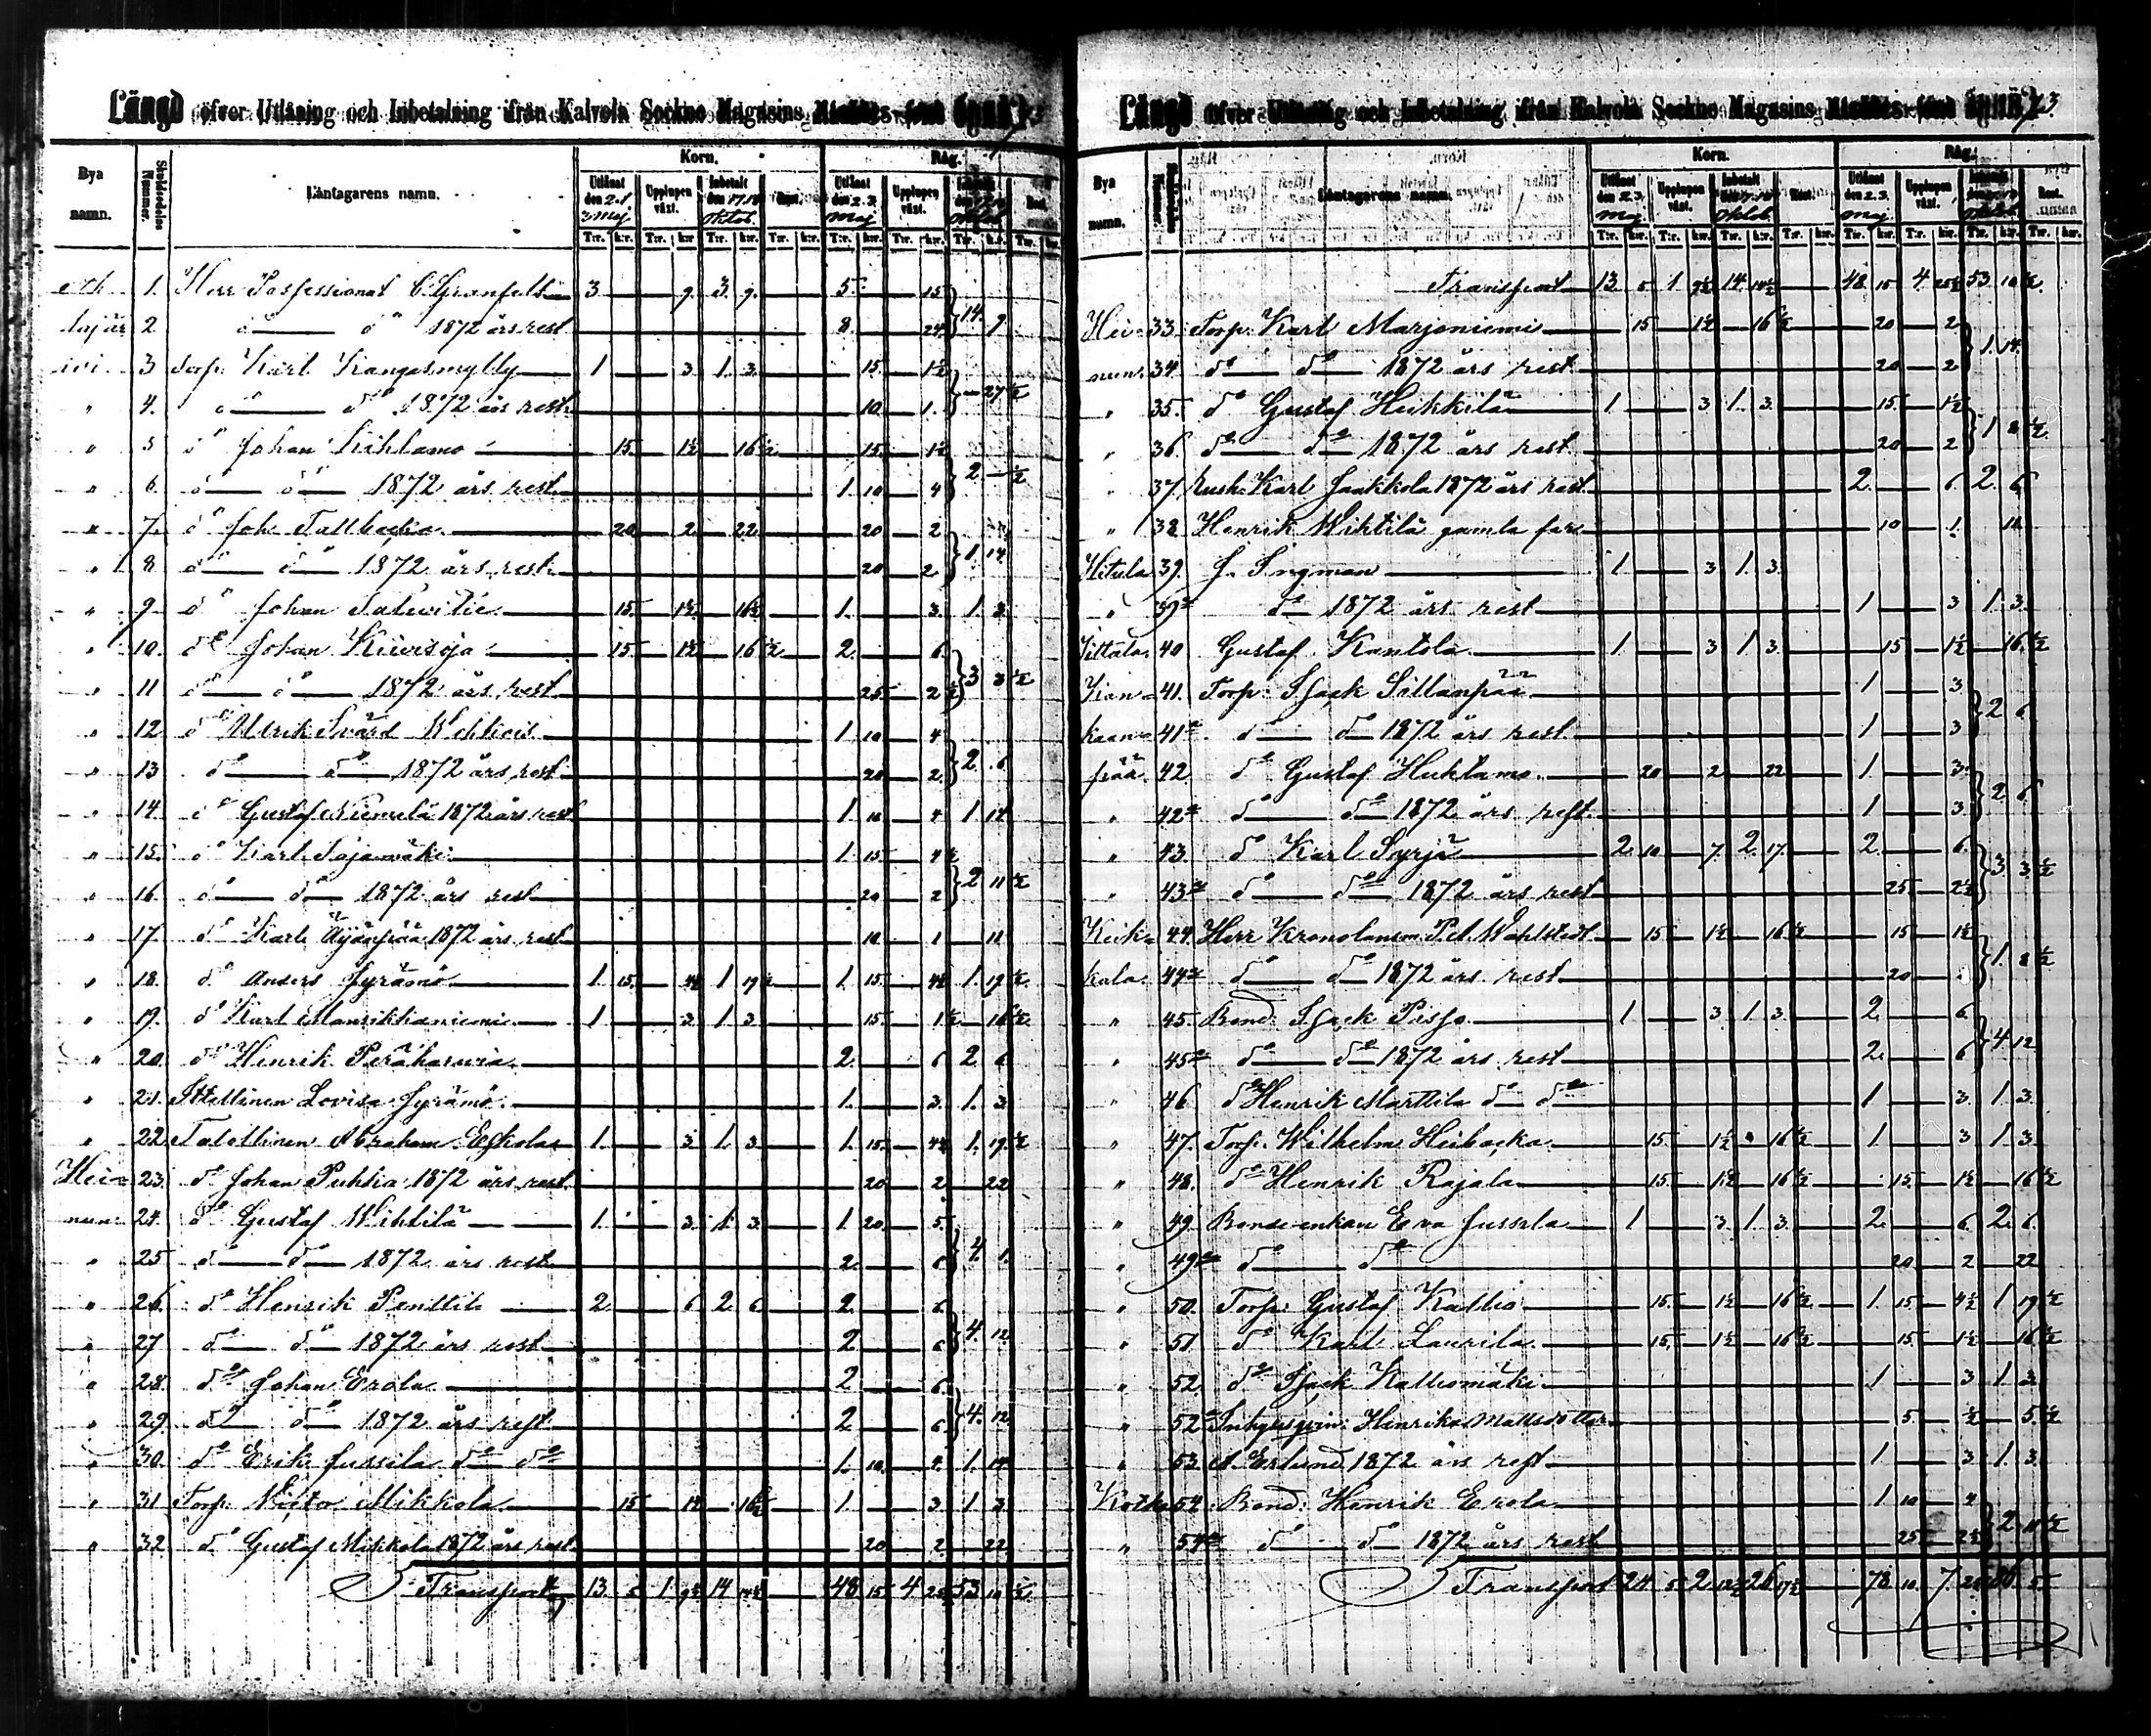 Längd öfver Utlåning och Inbetalning ifrån Kalvola Sockne Magasins
Bya namn. Skuldsedelns Nummer. Låntagarens namn. Korn. Råg.
Utlånat den 2.1. 3 Maj Upplupen växt. Inbetalt den 17.18 oktob. Rest. Utlånat den 2.3. maj Upplupen växt. oktob. Rest.
T:r. k:r. T:r. k:r. T:r. k:r. T:r. k:r. T:r. k:r. T:r. k:r. T:r. k:r. T:r. k:r.
1. Herr Possessionat C Granfelt 3 9. 3. 9. 5 15
2 do do 1872 års rest 8 24 } 14. 9
3 Torp. Karl Kangasmylly 1 3 1 3 15 1½
" 4. do do 1872 års rest 10 1. } 27½
" 5 do Johan Kihlamo 15 1½ 16½ 15 1½
" 6. do do 1872 års rest 1 10 4 } 2 ½
" 7. do Joh. Tallbacka 20 2 22 20 2
" 8 do do 1872 års rest 20 2 } 1. 14
" 9 do Johan 15 1½ 16½ 1 3. 1 3
" 10. do Johan Kiiersoja 15 1½ 16½ 2 6.
" 11 do do 1872 års rest 25 2½ } 3 8½
" 12 do Ulrik Svärd 1 10 4
" 13 do do 1872 års rest 20 2. } 2 6
" 14. do Gustaf Niemelä 1872 års rest 1 10 4 1 14
" 15. do Karl Sajamäki 1 15 4½
" 16. do do 1872 års rest 20 2 } 2 11½
" 17. do Karl Äijänpää 1872 års rest 10 1 11
" 18. do Anders Jyrämö 1 15 4½ 1 19½ 1 15 4½ 1. 19½
" 19. do Karl Mansikkaniemi 1 3 1 3 15 1½ 16½
" 20. do Henrik Peräharvia 2 6 2 6
" 21. Lovisa Jyrämö 1 3. 1. 3
" 22 Abraham Eskola 1 3 1 3 1 15 4½ 1. 19½
Hei= 23. do Johan Puhtia 1872 års rest 20 2 22
nun 24. do Gustaf Wihtilä 1 3 1 3 1 20 5.
" 25 do do 1872 års rest 2 6 } 4 1.
" 26. do Henrik Penttilä 2 6 2 6. 2 6
" 27 do do 1872 års rest 2 6 } 4. 12
" 28 do Johan Erola 2 6
" 29. do do 1872 års rest 2 6 } 4. 12
" 30. do Erik Jussila do do 1. 10 4. 1. 14
" 31 Torp. Victor Mikkola 15 1½ 16½ 1 3 1 3
" 32. do Gustaf Mikkola 1872 års rest 20 2 22
Transport 13. 5 1 9½ 14 14½ 48 15 4 25½ 53 10½
Längd öfver Utlåning och Inbetalning ifrån Kalvola Sockne Magasins
Bya namn. Låntagarens namn. Korn. Råg.
Utlånat den 2.3. maj Upplupen växt. Inbetalt oktob. Rest. Utlånat den 2.3. maj Upplupen växt. oktob. Rest.
T:r. k:r. T:r. k:r. T:r. k:r. T:r. k:r. T:r. k:r. T:r. k:r. T:r. k:r. T:r. k:r.
Transport 13 5 1 9½ 14 14½ 48 15 4 25½ 53 10½
Hei= 33. Torp. Karl Marjoniemi 15 1½ 16½ 20 2
nun. 34 do do 1872 års rest 20 2 } 1. 14.
" 35. do Gustaf Heikkilä 1. 3 1. 3 15 1½
" 36. do do 1872 års rest 20 2 } 1 8½
" 37. Karl Jaakkola 1872 års rest 2 6 2 6
" 38 Henrik Wihtilä gamla far 10 1. 11
Hitula 39. J. Ingman 1. 3 1. 3
" 39a do 1872 års rest 1 3 1. 3
Iittala 40 Gustaf Kantola 1. 3 1 3 15 1½ 16½
Kan= 41. Torp. Isack Sillanpää 1 3
kaan= 41a do do 1872 års rest 1 3 } 2 6
pää 42. do Gustaf Huhtamo 20 2 22 1 3
" 42a do do 1872 års rest 1 3 } 2 6
" 43 do Karl Syrjä 2 10 7. 2 17. 2 6
" 43a do do 1872 års rest 25 2½ } 3 3½
Keik= 44. Herr Kronolänsm. P.A. Wahlstedt 15 1½ 16½ 15 1½
kala 44a do do 1872 års rest 20 2 } 1. 8½
" 45 Bond. Isack Passo 1 3. 1. 3. 2. 6
" 45a do do 1872 års rest 2 6 } 4 12
" 46 do Henrik Marttila do do 1 3. 1 3.
" 47. Torp. Wilhelm Heibacka 15 1½ 16½ 1 3 1 3
" 48. do Henrik Rajala 15 1½ 16½ 15 1½ 16½
" 49. Bonde enkan Eva Jussila 1 3. 1. 3. 2 6. 2. 6.
" 49a do do 20 2 22
" 50. Torp. Gustaf Kallio 15 1½ 16½ 1. 15 4½ 1 19½
" 51 do Karl Laurila 15 1½ 16½ 15 1½ 16½
" 52 do Isack Kalliomäki 1 3 1 3
" 52a Inhysesqvin. Henrika Mattsdotter 5 ½ 5½
" 53. A. Erlund 1872 års rest 1 3 1. 3.
Kotka 54. Bond. Henrik Erola 1 10 4
" 54a do do 1872 års rest 25 2½ } 2 11½
Transport 24 5 2 12½ 26 17½ 78 10 7 25 86 5